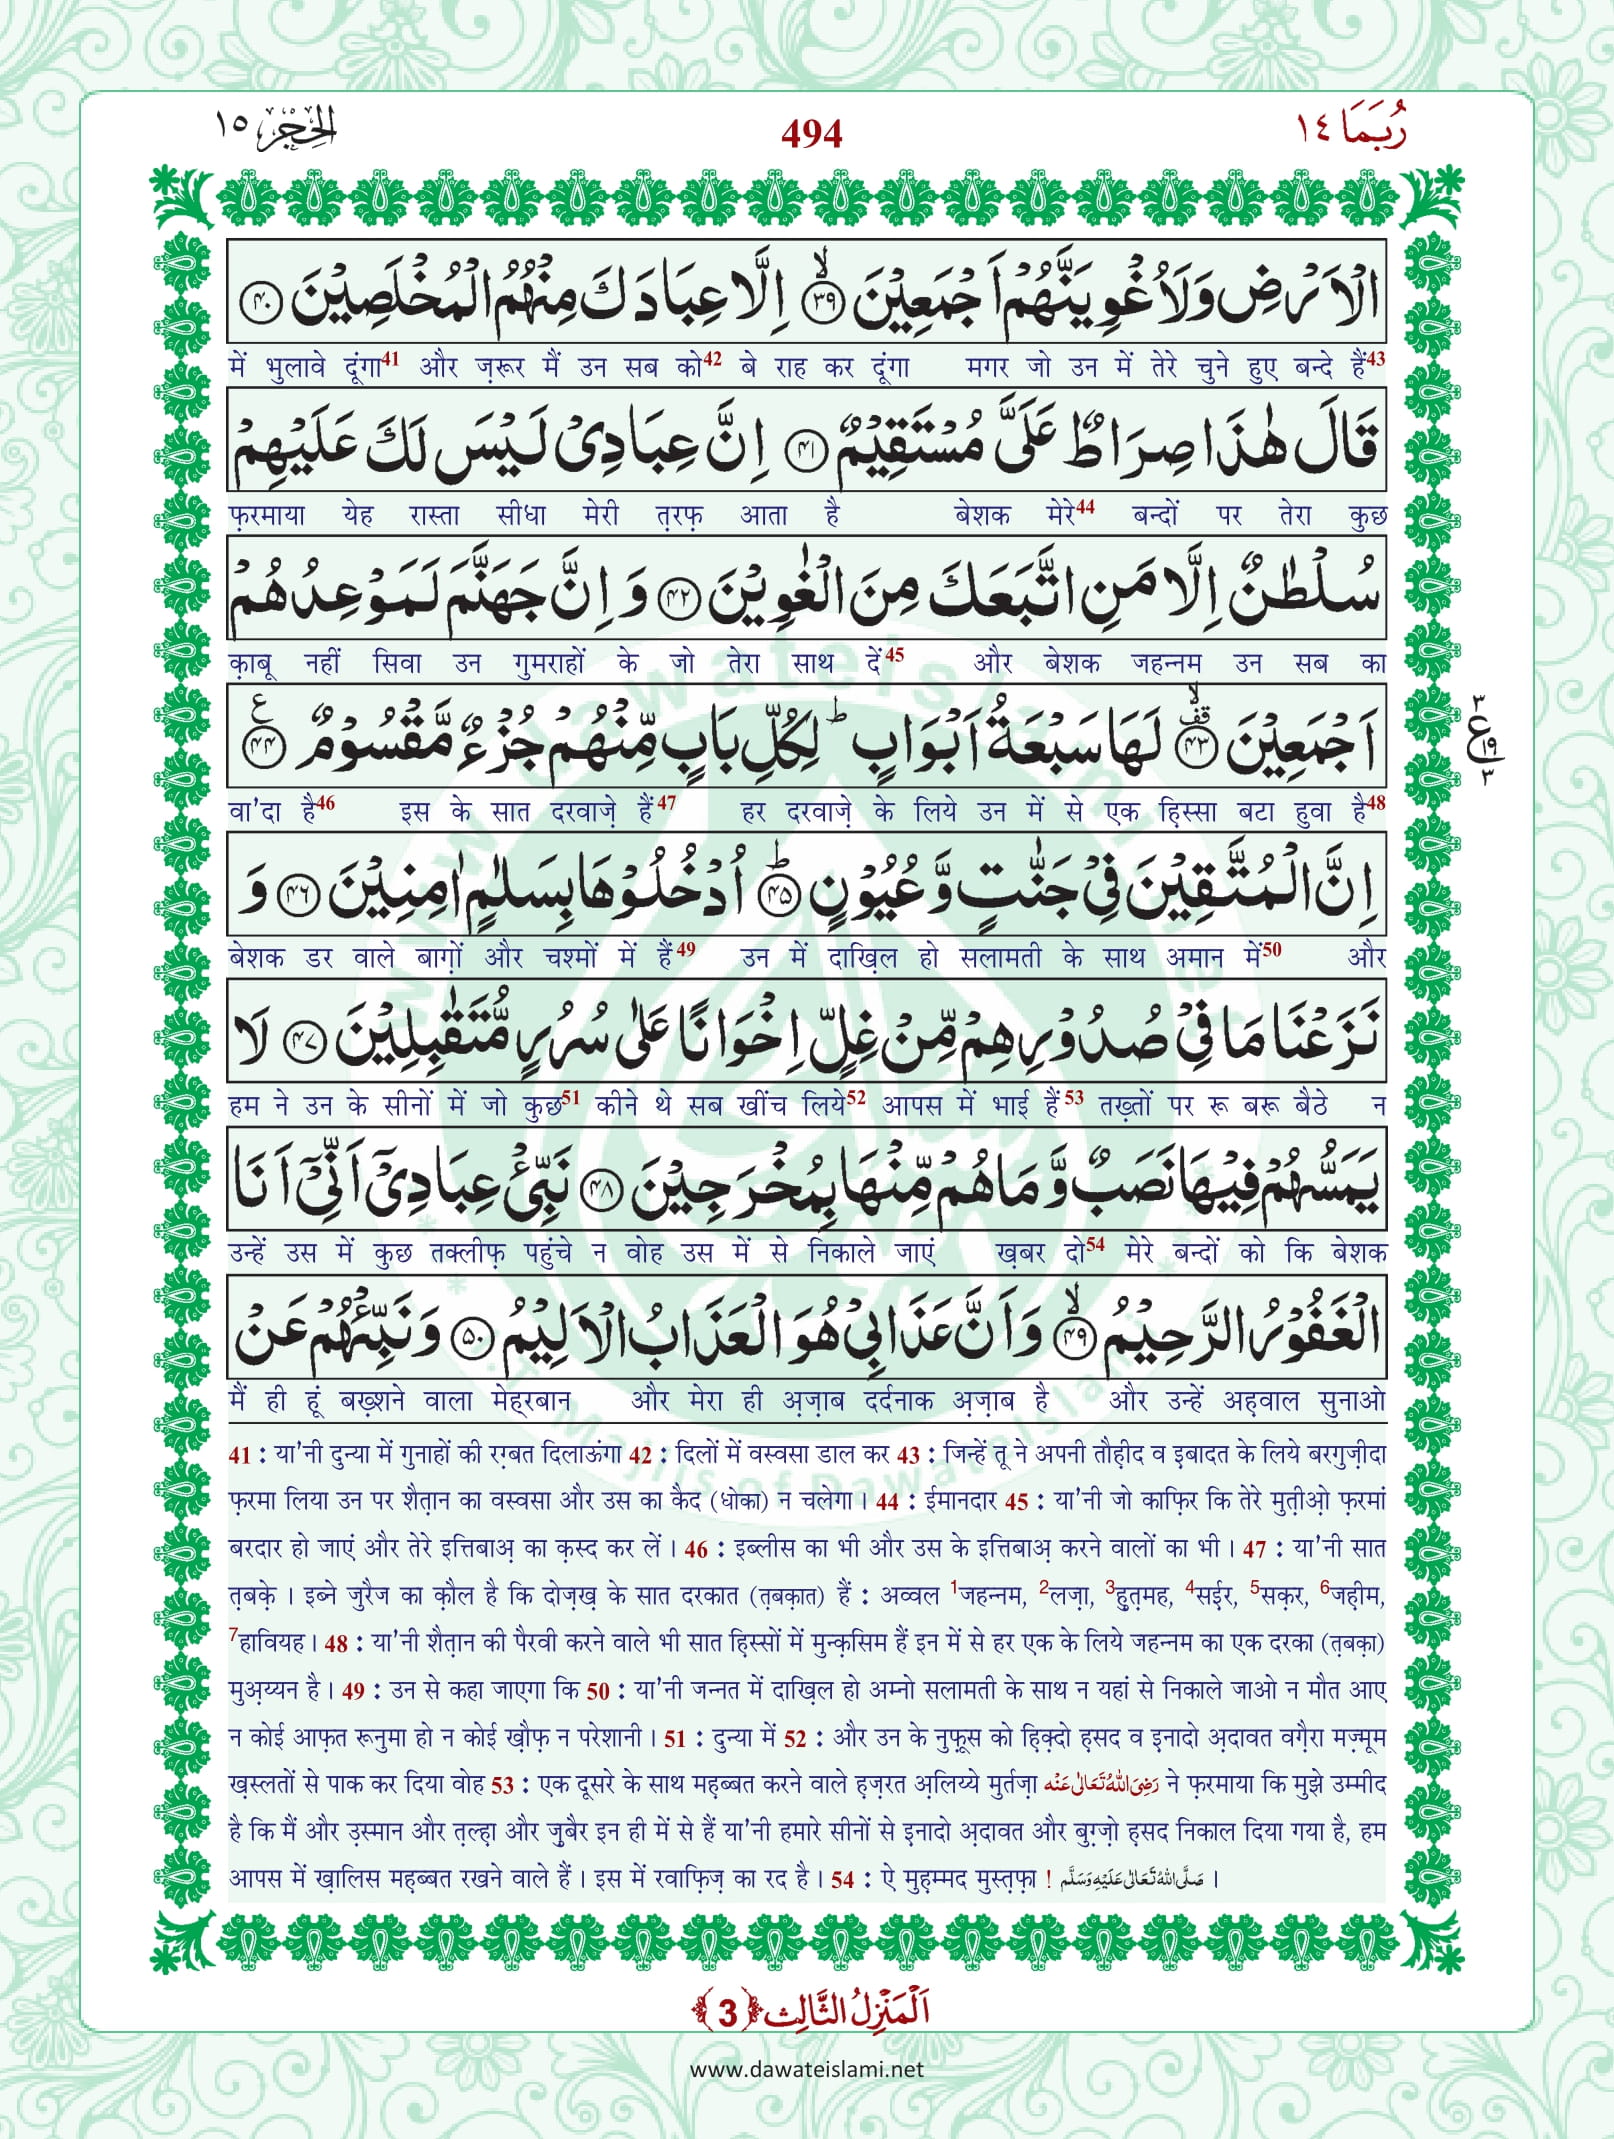 رُبَمَا ١٤
494
الحِجْر ١٥
الْاَرْضِ وَلَاُغْوِيَنَّهُمْ اَجْمَعِيْنَ ۙ﴿۳۹﴾ اِلَّا عِبَادَكَ مِنْهُمُ الْمُخْلَصِيْنَ ﴿۴۰﴾
में भुलावे दूंगा41 और ज़रूर मैं उन सब को42 बे राह कर दूंगा मगर जो उन में तेरे चुने हुए बन्दे हैं43
قَالَ هٰذَا صِرَاطٌ عَلَیَّ مُسْتَقِيْمٌ ﴿۴۱﴾ اِنَّ عِبَادِیْ لَيْسَ لَكَ عَلَيْهِمْ
फ़रमाया येह रास्ता सीधा मेरी त़रफ़ आता है बेशक मेरे44 बन्दों पर तेरा कुछ
سُلْطٰنٌ اِلَّا مَنِ اتَّبَعَكَ مِنَ الْغٰوِيْنَ ﴿۴۲﴾ وَ اِنَّ جَهَنَّمَ لَمَوْعِدُهُمْ
क़ाबू नहीं सिवा उन गुमराहों के जो तेरा साथ दें45 और बेशक जहन्नम उन सब का
اَجْمَعِيْنَ ۟ۙ﴿۴۳﴾ لَهَا سَبْعَةُ اَبْوَابٍ ؕ لِكُلِّ بَابٍ مِّنْهُمْ جُزْءٌ مَّقْسُوْمٌ ﴿۴۴﴾ ع
٣ ع ١٩ ٣
वा'दा है46 इस के सात दरवाज़े हैं47 हर दरवाज़े के लिये उन में से एक हि़स्सा बटा हुवा है48
اِنَّ الْمُتَّقِيْنَ فِیْ جَنّٰتٍ وَّ عُيُوْنٍ ؕ﴿۴۵﴾ اُدْخُلُوْهَا بِسَلٰمٍ اٰمِنِيْنَ ﴿۴۶﴾ وَ
बेशक डर वाले बाग़ों और चश्मों में हैं49 उन में दाख़िल हो सलामती के साथ अमान में50 और
نَزَعْنَا مَا فِیْ صُدُوْرِهِمْ مِّنْ غِلٍّ اِخْوَانًا عَلٰی سُرُرٍ مُّتَقٰبِلِيْنَ ﴿۴۷﴾ لَا
हम ने उन के सीनों में जो कुछ51 कीने थे सब खींच लिये52 आपस में भाई हैं53 तख़्तों पर रू बरू बैठे न
يَمَسُّهُمْ فِيْهَا نَصَبٌ وَّ مَا هُمْ مِّنْهَا بِمُخْرَجِيْنَ ﴿۴۸﴾ نَبِّئْ عِبَادِیْۤ اَنِّیْۤ اَنَا
उन्हें उस में कुछ तक्लीफ़ पहुंचे न वोह उस में से निकाले जाएं ख़बर दो54 मेरे बन्दों को कि बेशक
الْغَفُوْرُ الرَّحِيْمُ ۙ﴿۴۹﴾ وَ اَنَّ عَذَابِیْ هُوَ الْعَذَابُ الْاَلِيْمُ ﴿۵۰﴾ وَ نَبِّئْهُمْ عَنْ
मैं ही हूं बख़्शने वाला मेह्रबान और मेरा ही अ़ज़ाब दर्दनाक अ़ज़ाब है और उन्हें अह़वाल सुनाओ
41 : या'नी दुन्या में गुनाहों की रग़्बत दिलाऊंगा 42 : दिलों में वस्वसा डाल कर 43 : जिन्हें तू ने अपनी तौह़ीद व इबादत के लिये बरगुज़ीदा
फ़रमा लिया उन पर शैत़ान का वस्वसा और उस का कैद (धोका) न चलेगा । 44 : ईमानदार 45 : या'नी जो काफ़िर कि तेरे मुत़ीओ़ फ़रमां
बरदार हो जाएं और तेरे इत्तिबाअ़ का क़स्द कर लें । 46 : इब्लीस का भी और उस के इत्तिबाअ़ करने वालों का भी । 47 : या'नी सात
त़बक़े । इब्ने जुरैज का क़ौल है कि दोज़ख़ के सात दरकात (त़बक़ात) हैं : अव्वल 1जहन्नम, 2लज़ा, 3हु़त़मह, 4सई़र, 5सक़र, 6जह़ीम,
7हावियह । 48 : या'नी शैत़ान की पैरवी करने वाले भी सात हि़स्सों में मुन्क़सिम हैं इन में से हर एक के लिये जहन्नम का एक दरका (त़बक़ा)
मुअ़य्यन है । 49 : उन से कहा जाएगा कि 50 : या'नी जन्नत में दाख़िल हो अम्नो सलामती के साथ न यहां से निकाले जाओ न मौत आए
न कोई आफ़त रूनुमा हो न कोई ख़ौफ़ न परेशानी । 51 : दुन्या में 52 : और उन के नुफ़ूस को हि़क़्दो ह़सद व इनादो अ़दावत वग़ैरा मज़्मूम
ख़स्लतों से पाक कर दिया वोह 53 : एक दूसरे के साथ मह़ब्बत करने वाले ह़ज़रत अ़लिय्ये मुर्तज़ा رَضِیَ اللّٰهُ تَعَالٰی عَنْه ने फ़रमाया कि मुझे उम्मीद
है कि मैं और उ़स्मान और त़ल्ह़ा और ज़ुबैर इन ही में से हैं या'नी हमारे सीनों से इ़नादो अ़दावत और बुग़्ज़ो ह़सद निकाल दिया गया है, हम
आपस में ख़ालिस मह़ब्बत रखने वाले हैं । इस में रवाफ़िज़ का रद है । 54 : ऐ मुह़म्मद मुस्त़फ़ा ! صَلَّی اللّٰهُ تَعَالٰی عَلَيْهِ وَسَلَّم ।
اَلْمَنْزِلُ الثَّالِث ﴿3﴾
www.dawateislami.net